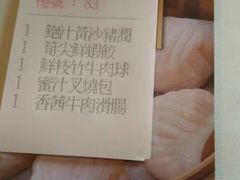 檯號：83
1 鮑汁黃沙豬潤
1 筍尖鮮蝦餃
1 鮮枝竹牛肉球
1 蜜汁叉燒包
1 香茜牛肉滑腸